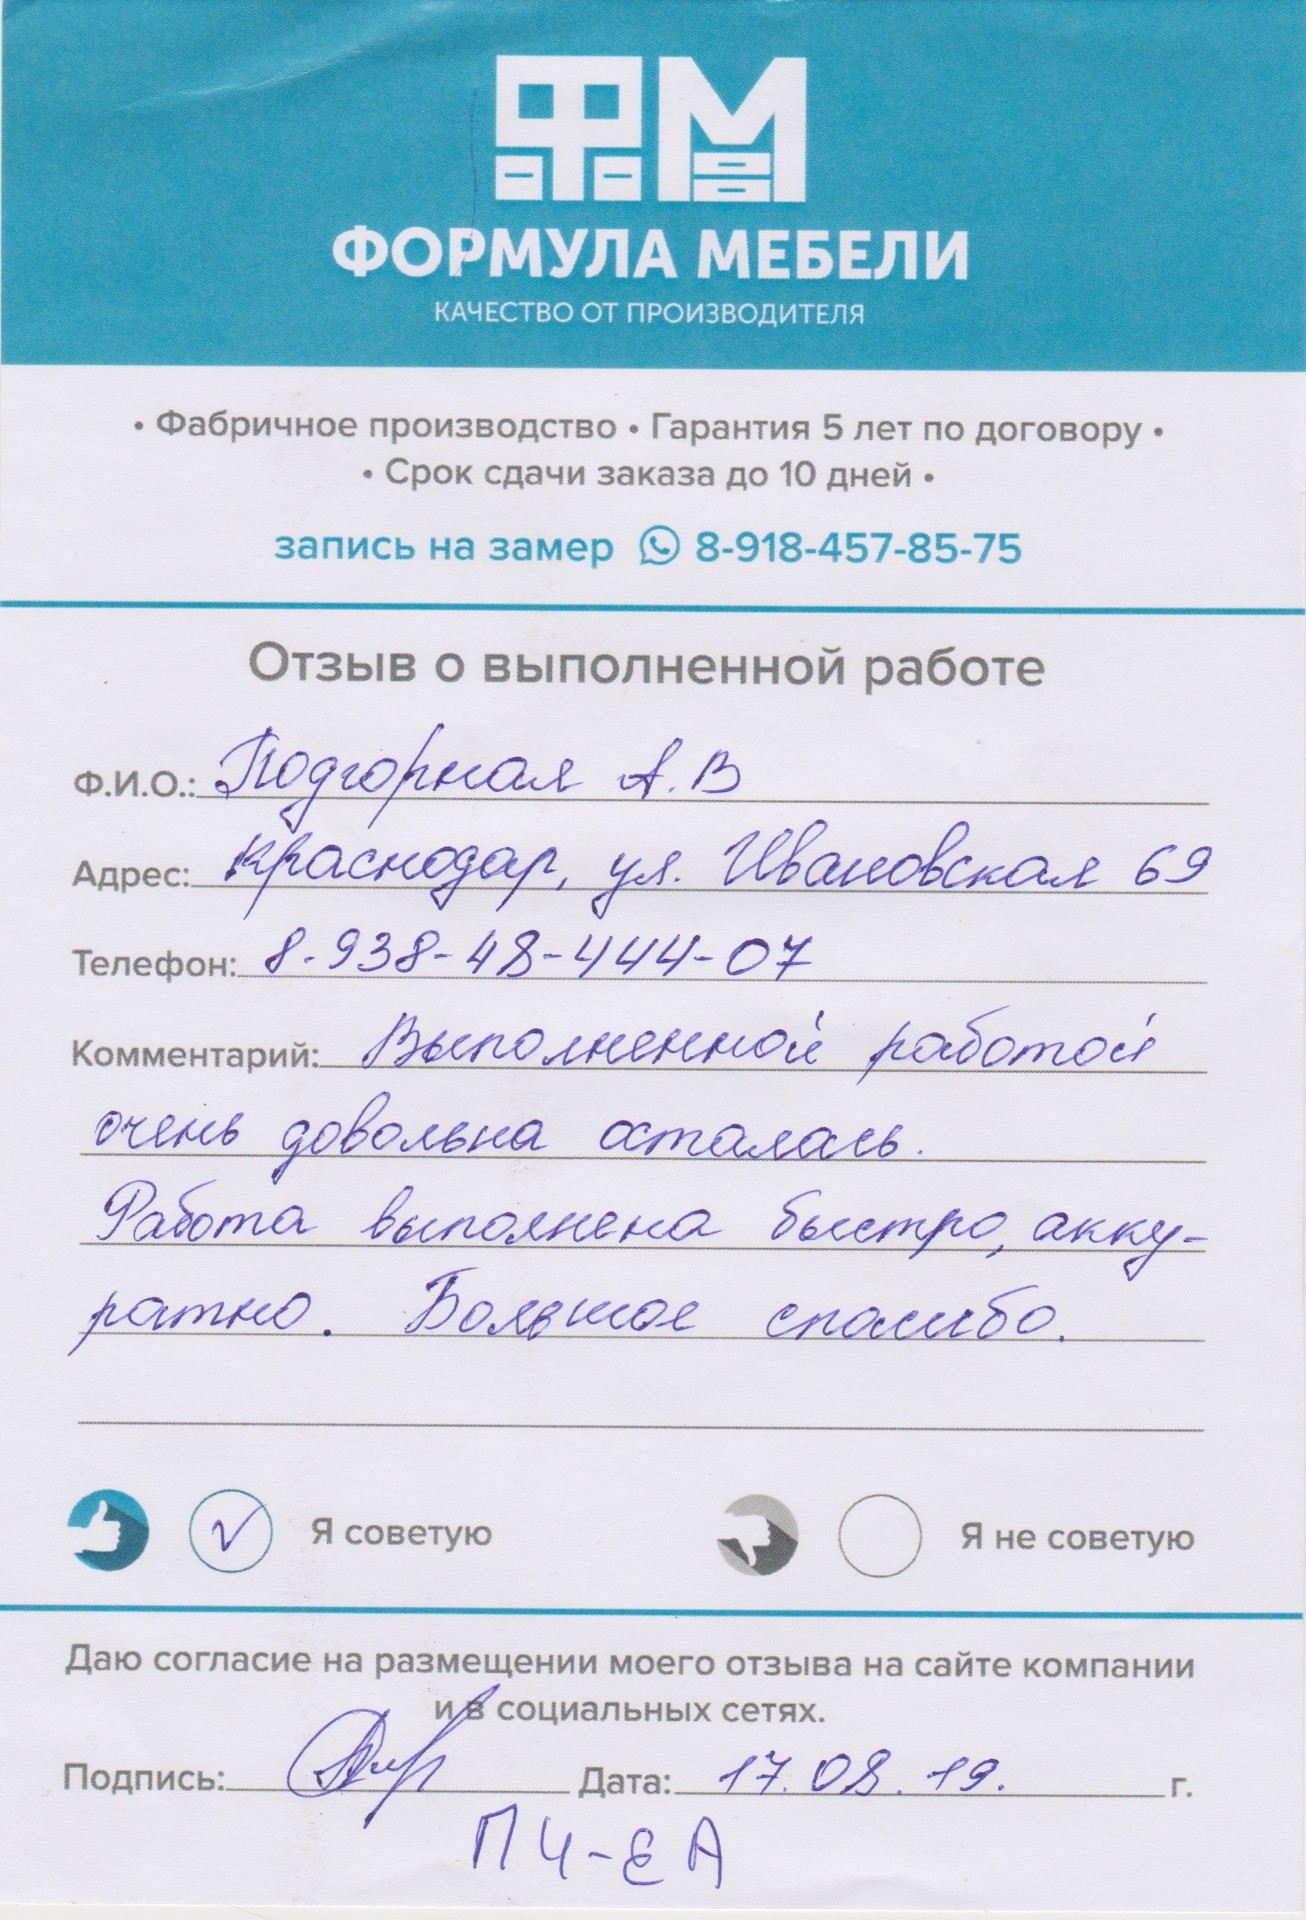 ФМ
ФОРМУЛА МЕБЕЛИ
КАЧЕСТВО ОТ ПРОИЗВОДИТЕЛЯ
• Фабричное производство • Гарантия 5 лет по договору •
• Срок сдачи заказа до 10 дней •
запись на замер 8-918-457-85-75
Отзыв о выполненной работе
Ф.И.О.: Подгорная А.В
Адрес: Краснодар, ул. Ивановская 69
Телефон: 8-938-48-444-07
Комментарий: Выполненной работой
очень довольна осталась.
Работа выполнена быстро, акку-
ратно. Большое спасибо.
Я советую Я не советую
Даю согласие на размещении моего отзыва на сайте компании
и в социальных сетях.
Подпись: Дата: 17.08.19. г.
ПЧ-ЕА